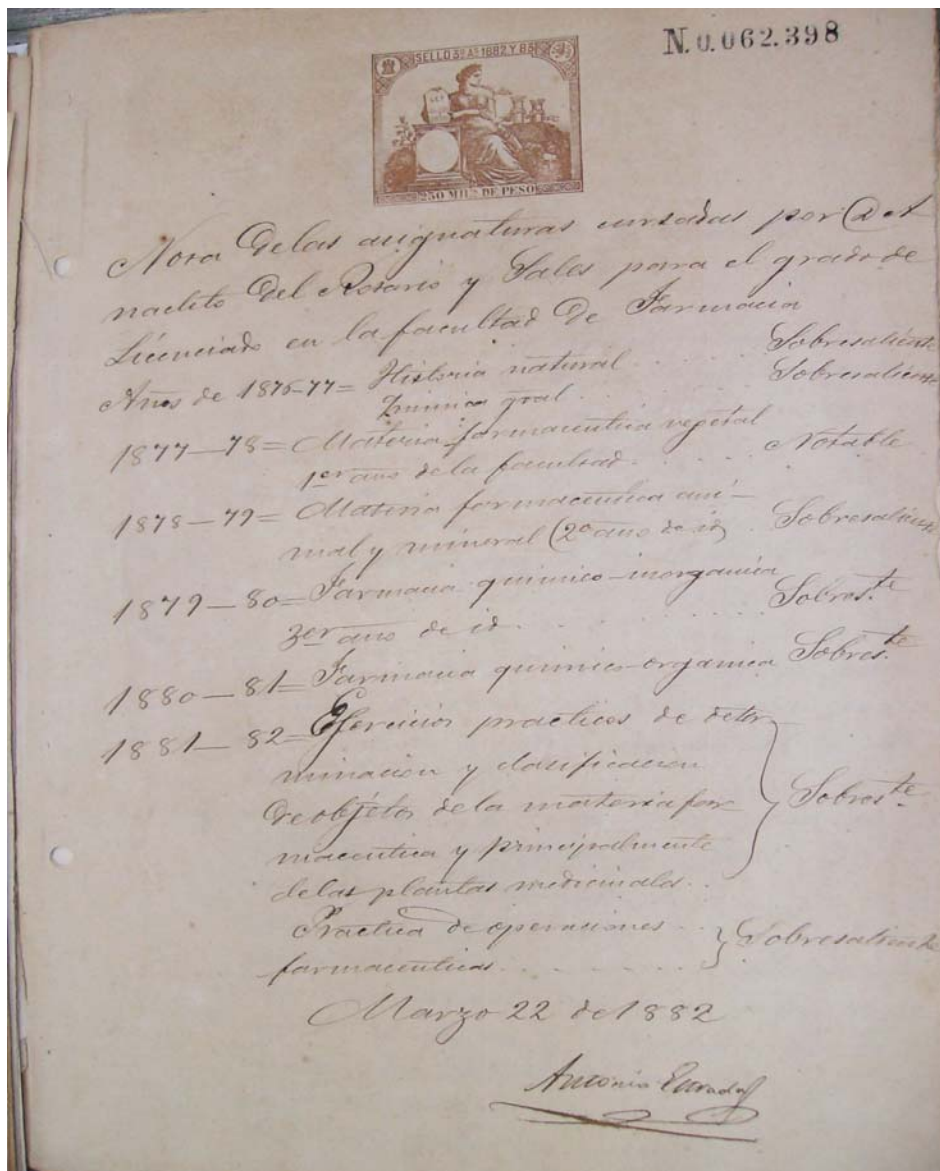 N. 0.062.398
SELLO 3º AS 1882 Y 83
250 MILS DE PESO
Nota de las asignaturas cursadas por D. A
nacleto del Rosario y Sales para el grado de
Licenciado en la facultad de Farmacia
Años de 1876-77= Historia natural . . . . Sobresaliente
Quimica gral . . . . Sobresaliente
1877-78= Materia farmaceutica vegetal
1er año de la facultad. . . . . Notable
1878-79= Materia farmaceutica ani-
mal y mineral (2º año de id) Sobresaliente
1879-80= Farmacia quimico-inorganica
3er año de id . . . . . Sobreste
1880-81= Farmacia quimico-organica Sobreste
1881-82= Ejercicios practicos de deter
minacion y clasificacion
de objetos de la materia far
maceutica y principalmente
de las plantas medicinales. . Sobreste
Practica de operaciones . .
farmaceuticas . . . . . Sobresaliente
Marzo 22 de 1882
Antonio